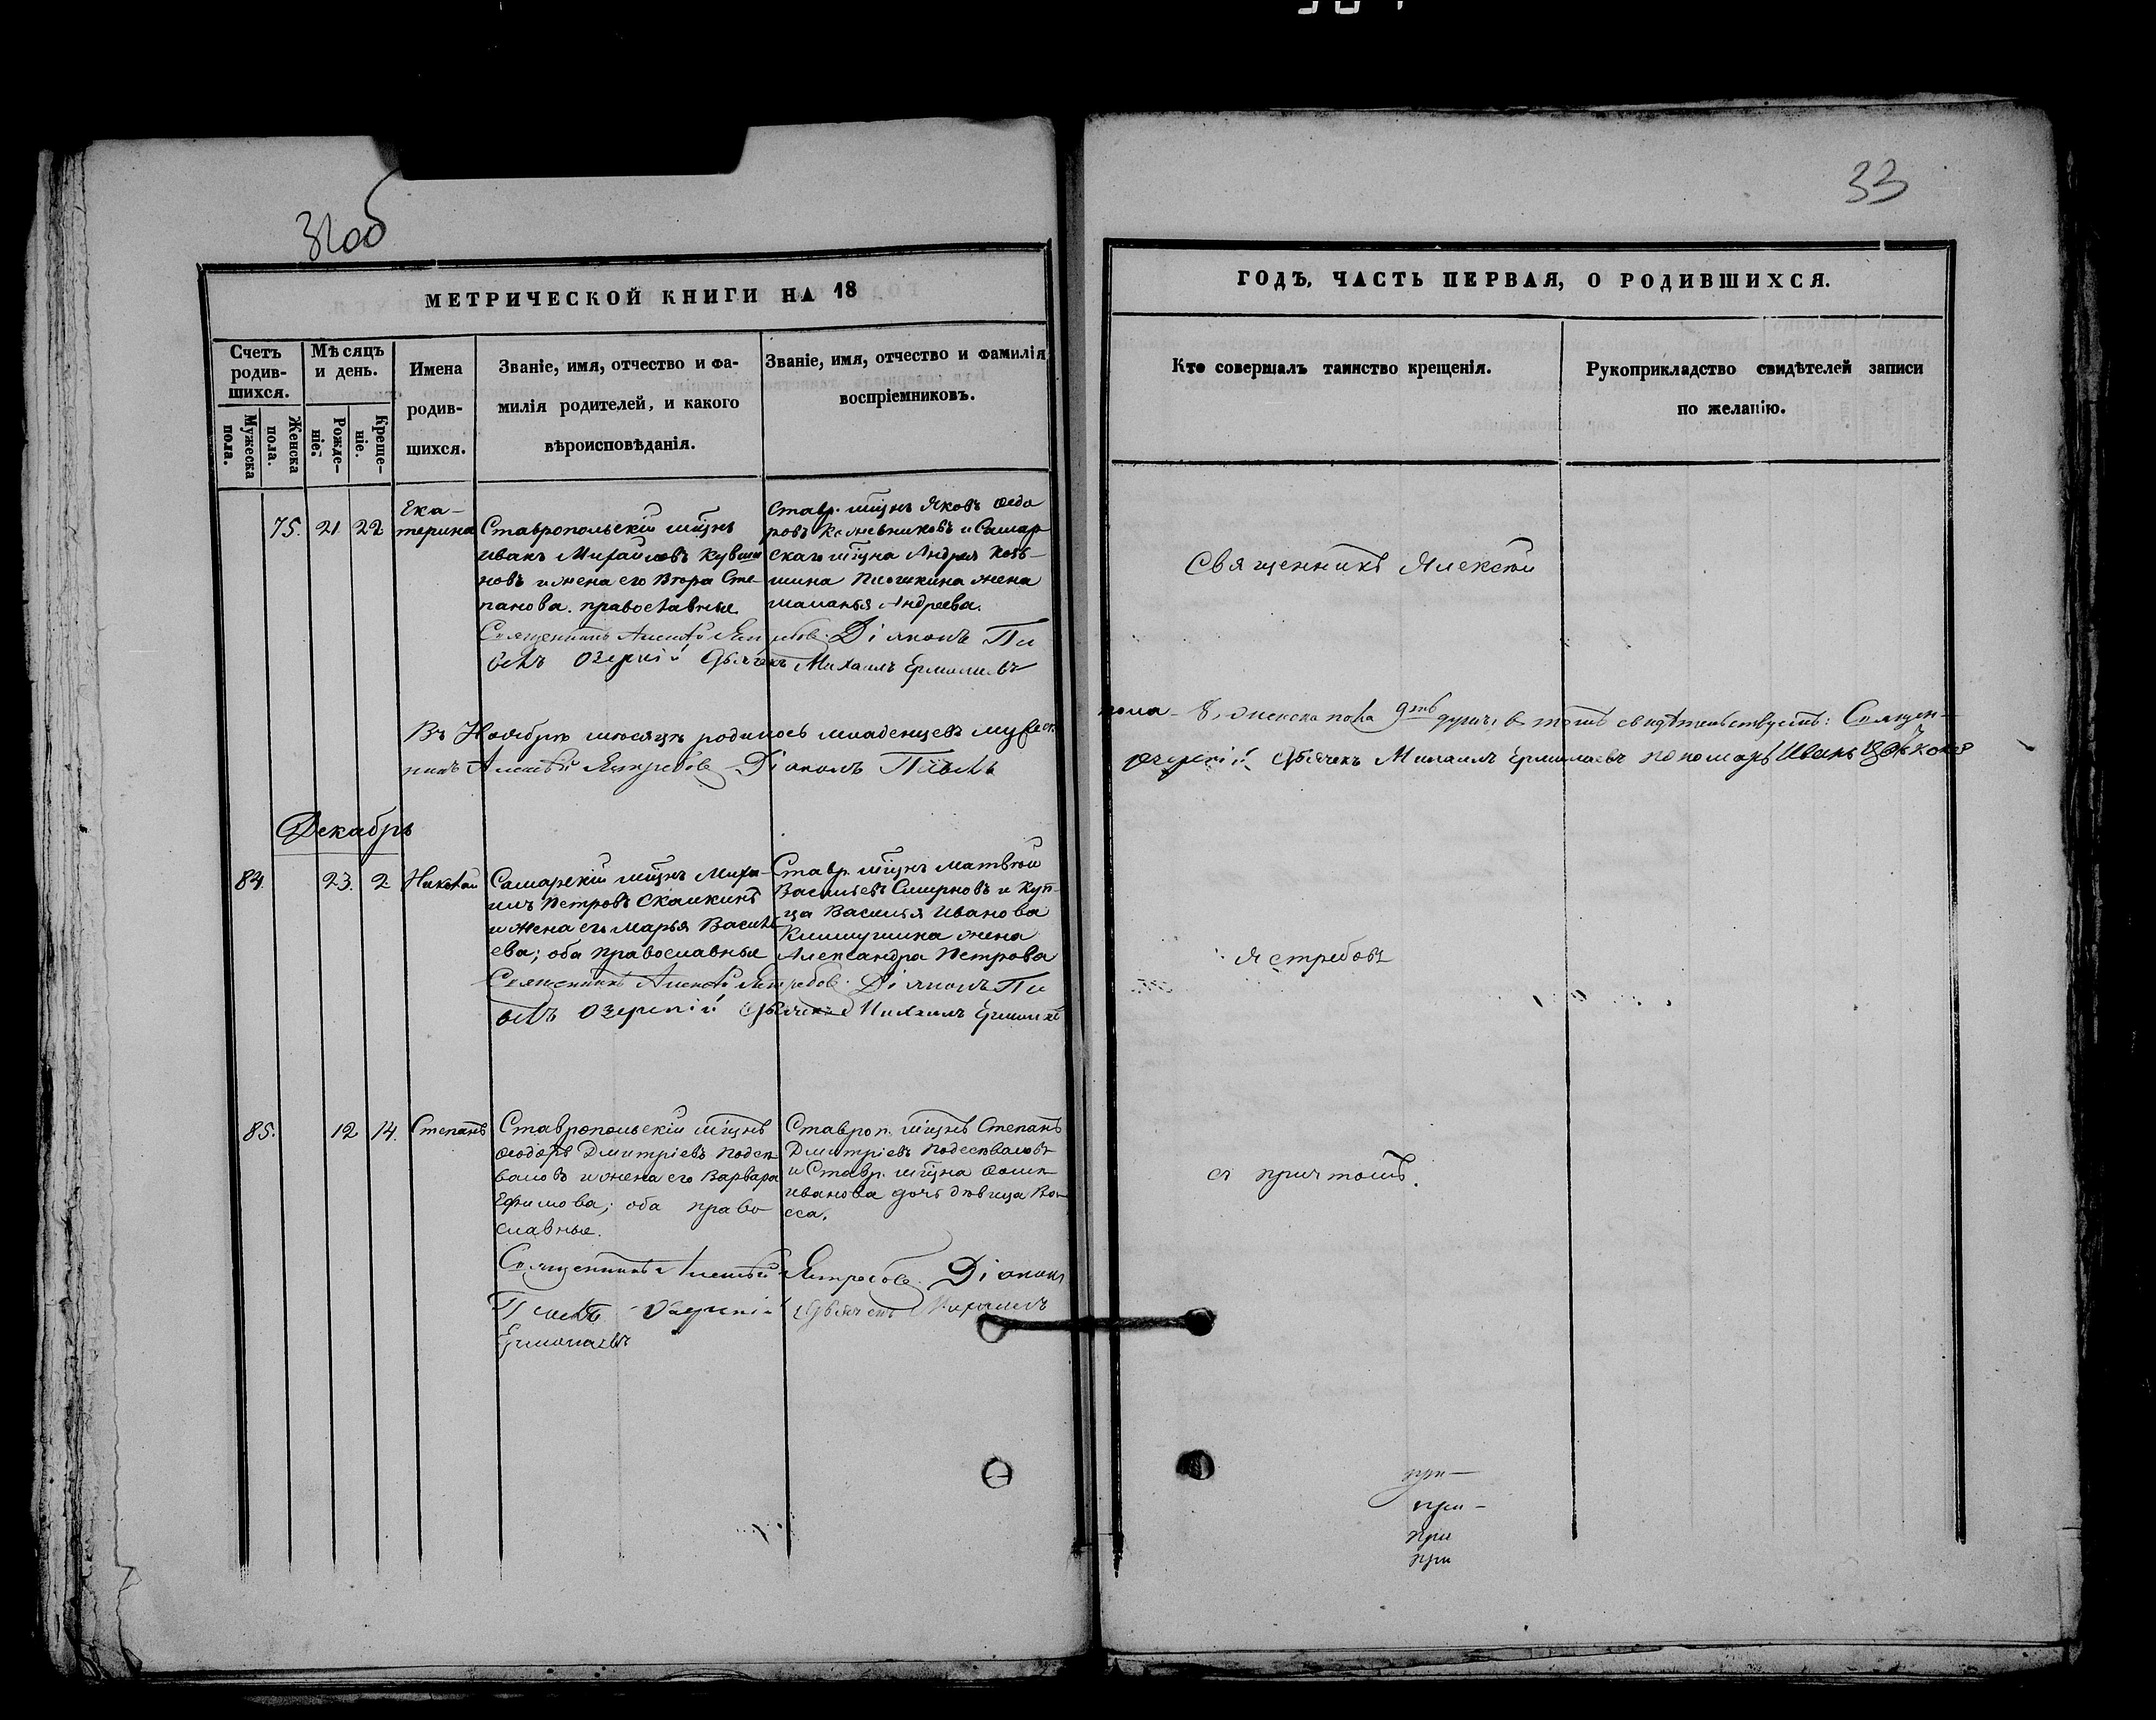 32об
33
МЕТРИЧЕСКОЙ КНИГИ НА 18
Счетъ родив-шихся.
Мужеска пола.
Женска пола.
Мѣсяцъ и день.
Рожде-ніе.
Креще-ніе.
Имена
родив-
шихся.
Званіе, имя, отчество и фа-
милія родителей, и какого
вѣроисповѣданія.
Званіе, имя, отчество и фамилія
воспріемниковъ.
75. 21. 22
Ека-
терина
Ставропольскій мѣщнъ
Иванъ Михайловъ
новъ и жена его Вѣра Сте-
панова. православные.
Ставр. мѣщнъ Яковъ Ѳедо
ровъ и Самар
скаго мѣщна Андрея Козь-
мина жена
Маланья Андреева.
Священникъ Алексѣй Ястребовъ. Діаконъ Па
велъ Озерскій Дьячекъ Михаилъ Ермолаевъ
Въ Ноябрѣ мѣсяцѣ родилось младенцевъ мужеск.
никъ Алексѣй Ястребовъ Діаконъ Павелъ
Декабрь
84. 23. 2. Николай
Самарскій мѣщнъ Миха-
илъ Петровъ Скалкинъ
и жена его Марья Василь
ева; оба православные
Ставр. мѣщнъ Матвѣй
Васильевъ Смирновъ и куп-
ца Василья Иванова
Климушина жена
Александра Петрова
Священникъ Алексѣй Ястребовъ. Діаконъ Па
велъ Озерскій Дьячекъ Михаилъ Ермолаевъ
85. 12 14. Степанъ
Ставропольскій мѣщнъ
Ѳеодоръ Дмитріевъ
и жена его Варвара
Ефимова; оба право
славные.
Ставроп. мѣщнъ Степанъ
Дмитріевъ
и Ставр. мѣщна Ѳомы
Иванова дочь дѣвица
Священникъ Алексѣй Ястребовъ. Діаконъ
Павелъ Озерскій Дьячекъ Михаилъ
Ермолаевъ
ГОДЪ, ЧАСТЬ ПЕРВАЯ, О РОДИВШИХСЯ.
Кто совершалъ таинство крещенія.
Рукоприкладство свидѣтелей записи
по желанію.
Священникъ Алексѣй
пола – 8, женска пола 9ть душъ, в томъ свидѣтельствуемъ: Священ-
Озерскій Дьячекъ Михаилъ Ермолаевъ пономарь Иванъ
Ястребовъ
съ причтомъ.
при –
при –
при
при